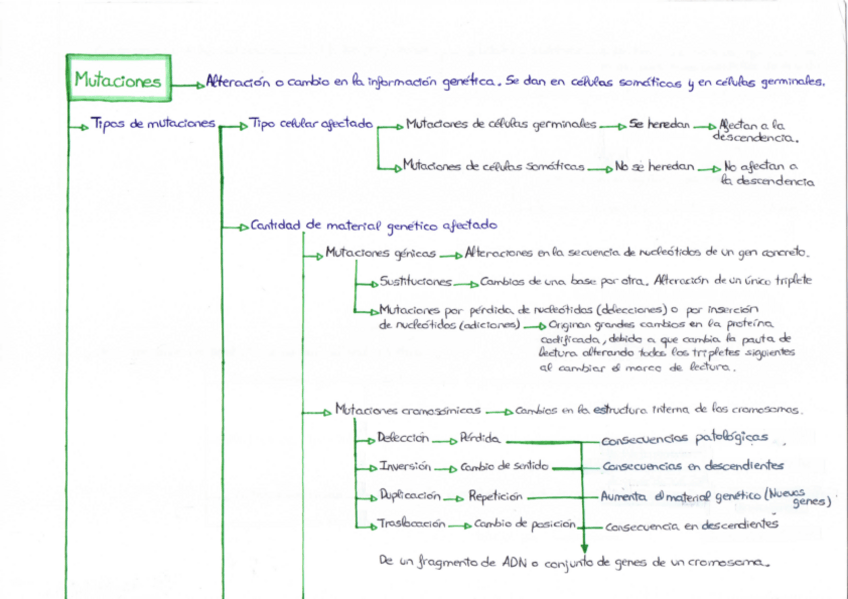 Mutaciones Alteración o cambio en la información genética. Se dan en células somáticas y en células germinales.
Tipos de mutaciones Tipo celular afectado Mutaciones de células germinales Se heredan Afectan a la
descendencia.
Mutaciones de células somáticas No se heredan No afectan a
la descendencia
Cantidad de material genético afectado
Mutaciones génicas Alteraciones en la secuencia de nucleótidos de un gen concreto.
Sustituciones Cambios de una base por otra. Alteración de un único triplete
Mutaciones por pérdida de nucleótidos (delecciones) o por inserción
de nucleótidos (adiciones) Originan grandes cambios en la proteína
codificada, debido a que cambia la pauta de
lectura alterando todos los tripletes siguientes
al cambiar el marco de lectura.
Mutaciones cromosómicas Cambios en la estructura interna de los cromosomas.
Delección Pérdida consecuencias patológicas
Inversión Cambio de sentido Consecuencias en descendientes
Duplicación Repetición Aumenta el material genético (Nuevos
genes)
Traslocación Cambio de posición Consecuencia en descendientes
De un fragmento de ADN o conjunto de genes de un cromosoma.